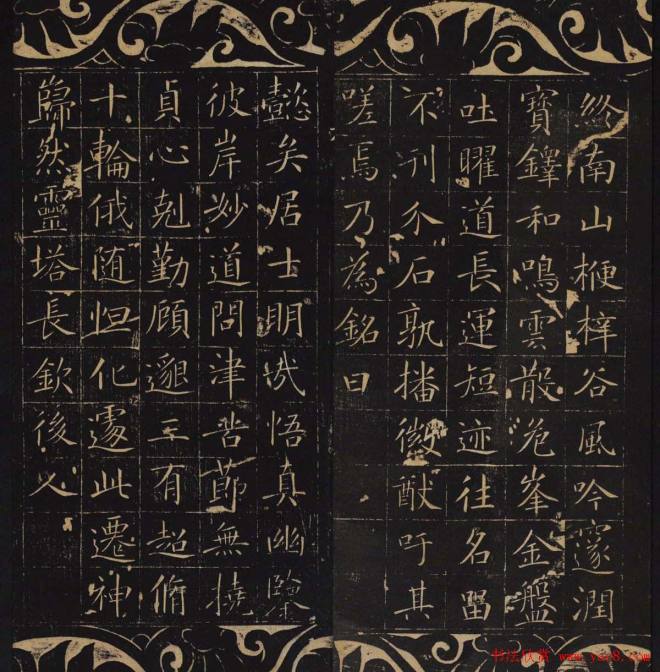 終南山楩梓谷風吟邃澗
寶鐸和鳴雲散危峯金盤
吐曜道長運短迹往名留
不刊介石孰播徽猷吁其
嗟焉乃為銘曰
懿矣居士明哉悟真幽鑒
彼岸妙道問津苦節無撓
貞心剋勤顧邈三有超脩
十輪俄随恒化遽此遷神
巋然靈塔長欽後人
书法欣赏 www.yac8.com